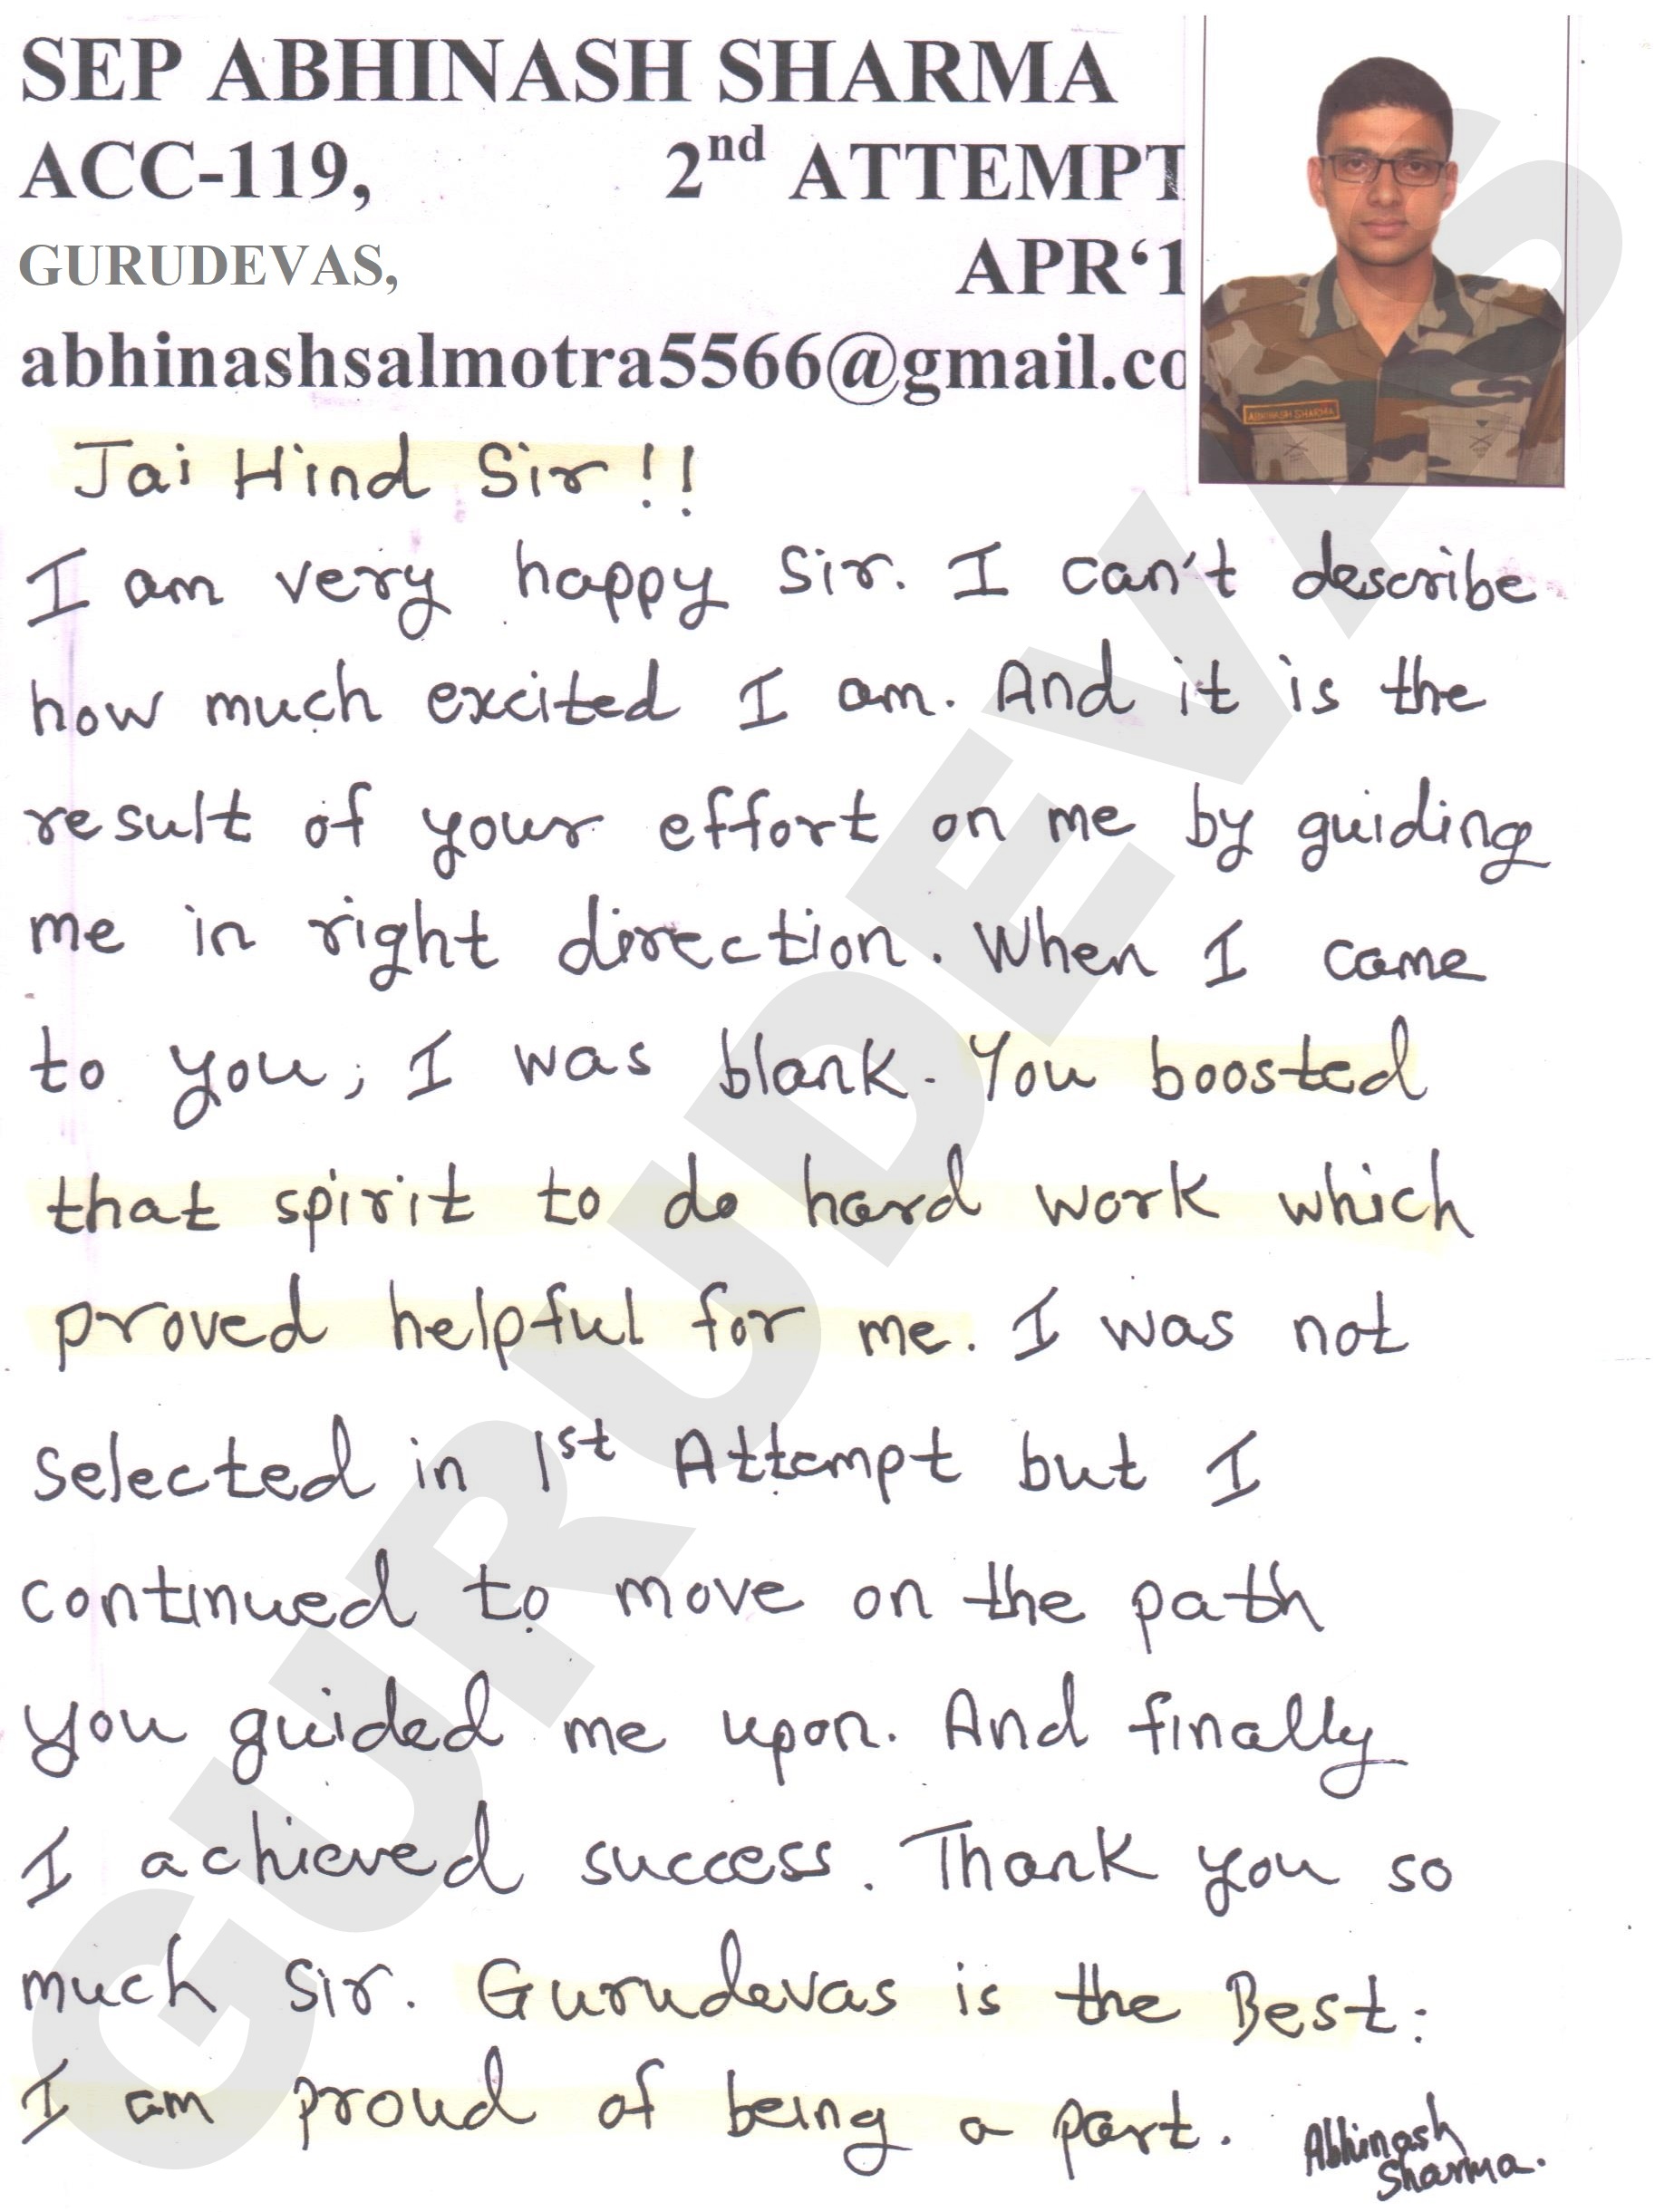 SEP ABHINASH SHARMA
ACC-119, 2nd ATTEMPT
GURUDEVAS, APR‘1
abhinashsalmotra5566@gmail.co
ABHINASH SHARMA
Jai Hind Sir !!
I am very happy Sir. I can't describe
how much excited I am. And it is the
result of your effort on me by guiding
me in right direction. When I came
to you, I was blank. You boosted
that spirit to do hard work which
proved helpful for me. I was not
selected in 1st Attempt but I
continued to move on the path
you guided me upon. And finally
I achieved success. Thank you so
much Sir. Gurudevas is the Best.
I am proud of being a part.
Abhinash
Sharma.
GURUDEVAS